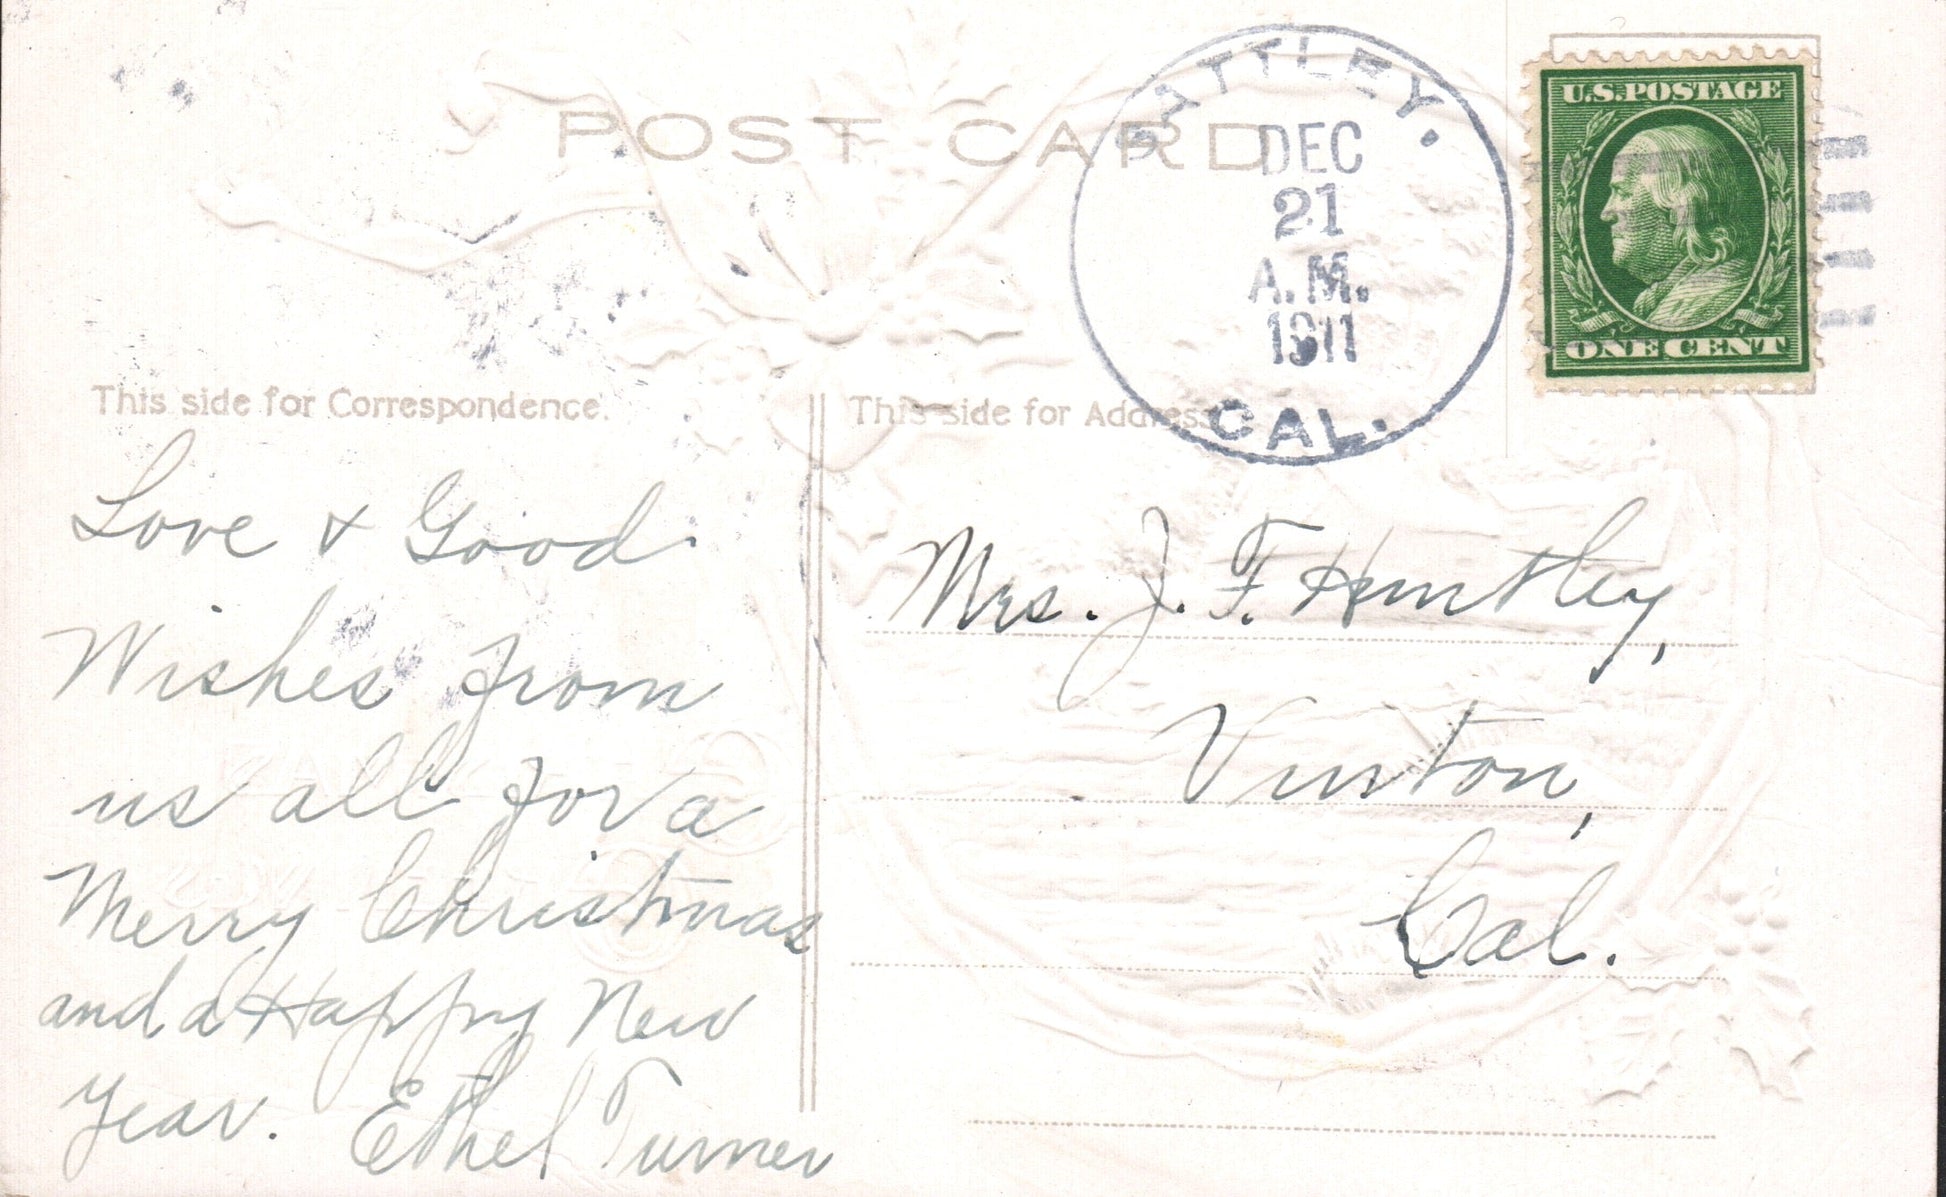 POST CARD
SATTLEY.
DEC
21
A.M.
1911
CAL.
U.S.POSTAGE
ONE CENT
This side for Correspondence.
This side for Address
Love & Good
Wishes from
us all for a
Merry Christmas
and a Happy New
Year. Ethel Turner
Mrs. J. F. Huntley,
Vinton,
Cal.